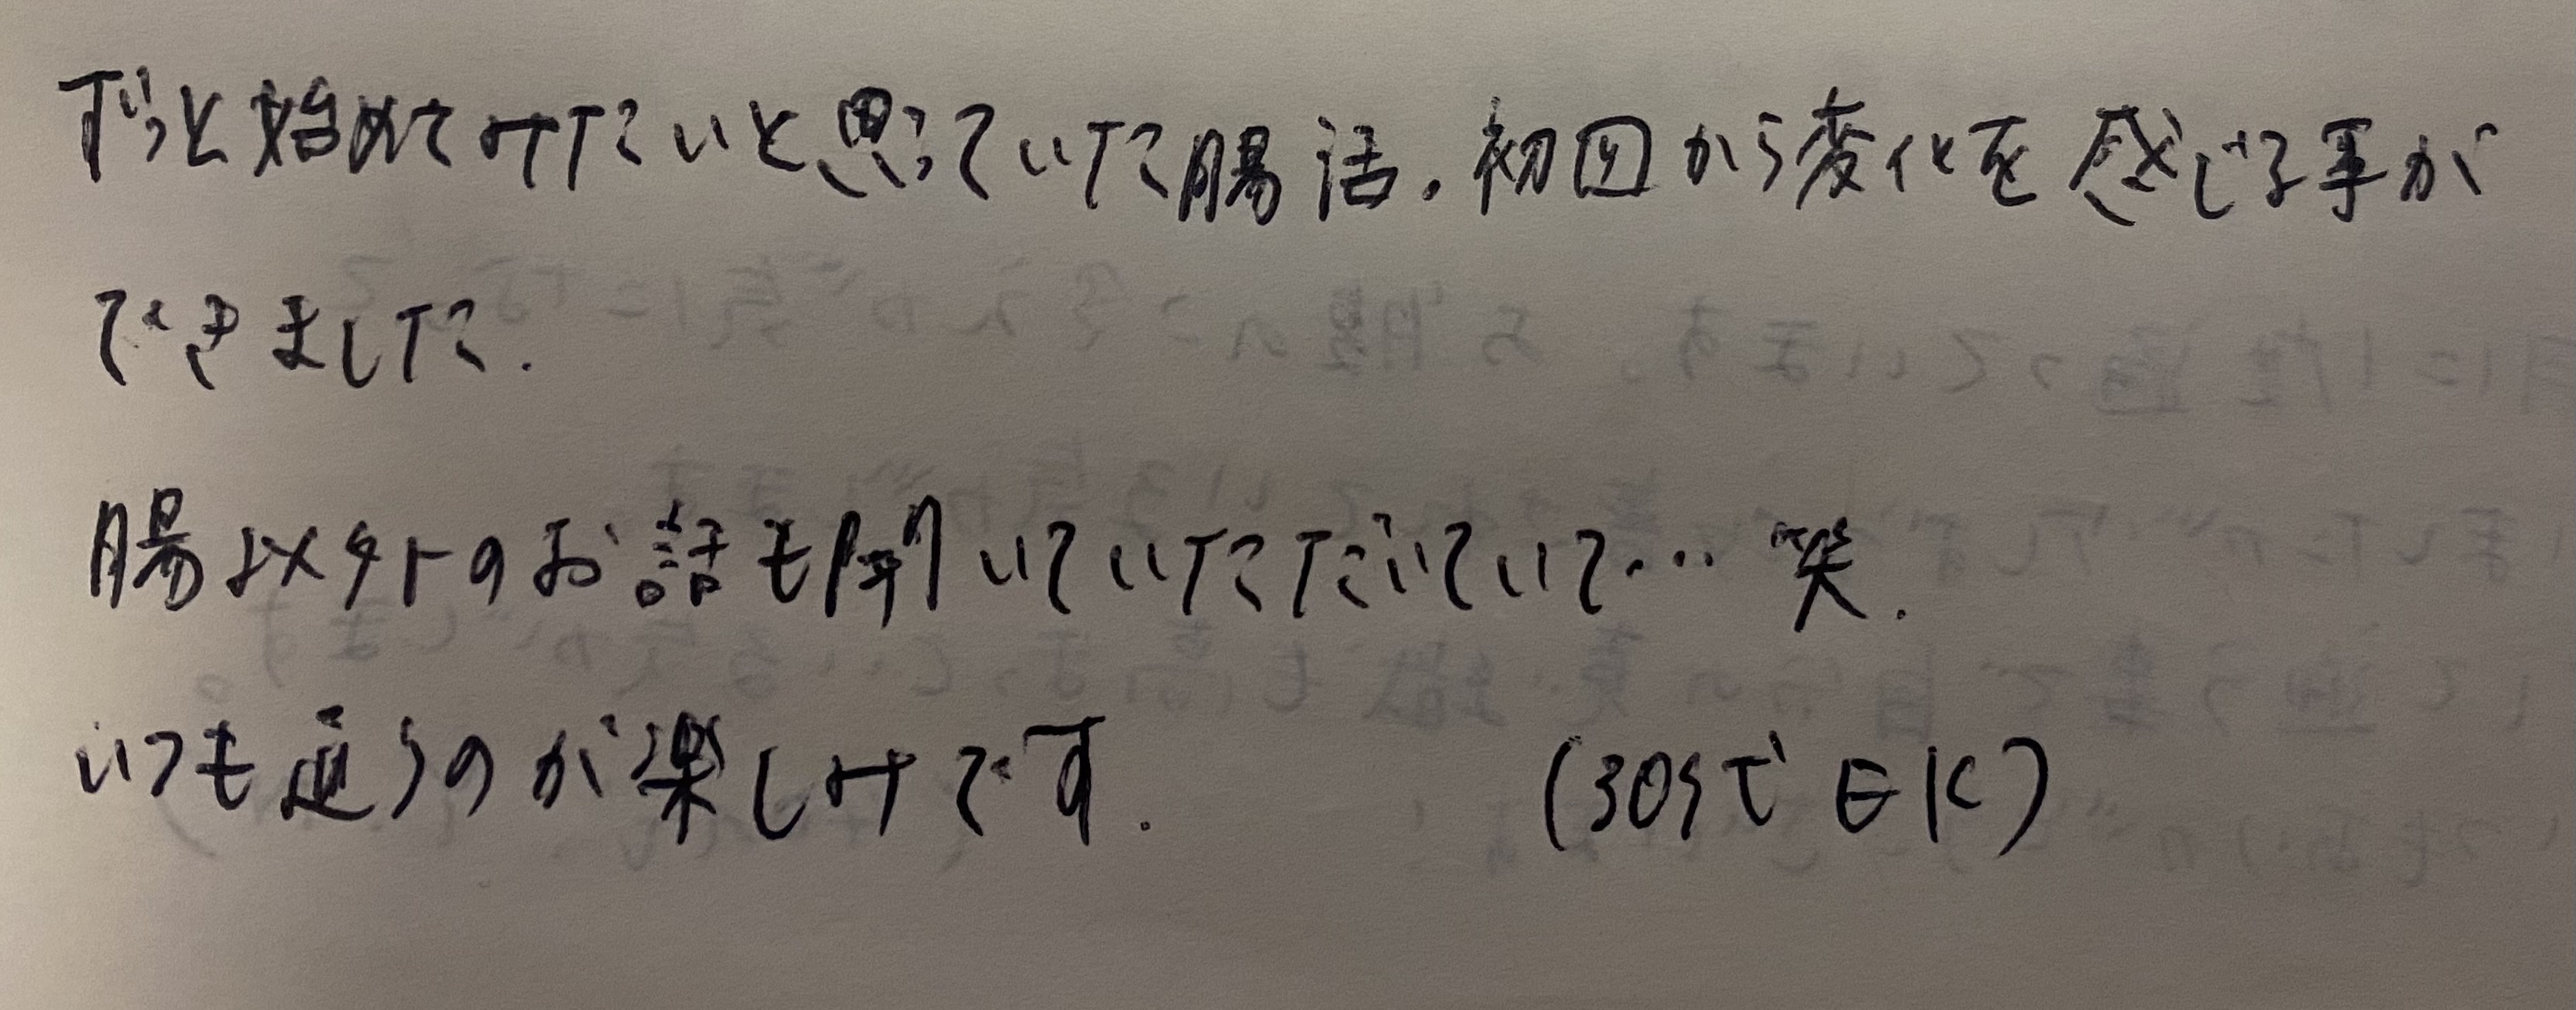 ずっと始めてみたいと思っていた腸活．初回から変化を感じる事が
できました．
腸以外のお話も聞いていただいていて…笑．
いつも通うのが楽しみです．　(30代 E K)